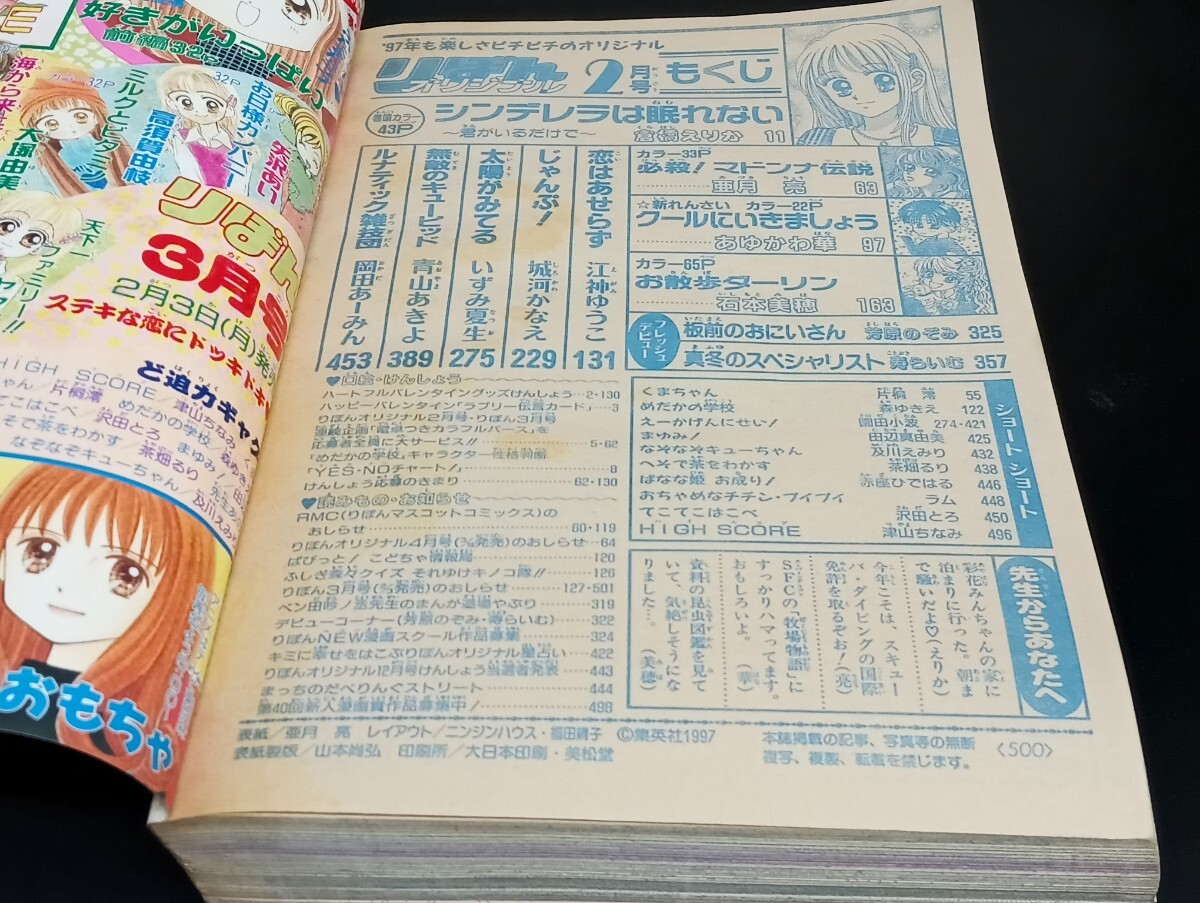 好きがいっぱい
前編32P
海から来た
大塚由美
カラー 32P
ミルクとビタミン
高須賀由枝
32P
お日様カンパニー
矢沢あい
りぼん
3月号
2月3日(月)発売
ステキな恋にドッキドキ
天下一
ファミリー!!
HIGH SCORE/津山ちなみ
ど迫力ギャグ
ちゃん/片桐澪 めだかの学校/森ゆきえ
てこてこはこべ/沢田とろ まゆみ!/田
へそで茶をわかす/茶畑るり
なぞなぞキューちゃん/及川えみり
おもちゃ
'97年も楽しさピチピチのオリジナル
りぼんオリジナル 2月号 もくじ
巻頭カラー43P
シンデレラは眠れない
〜君がいるだけで〜
倉橋えりか 11
カラー33P
必殺!マドンナ伝説
亜月亮 63
☆新れんさい カラー22P
クールにいきましょう
あゆかわ華 97
カラー65P
お散歩ダーリン
石本美穂 163
恋はあせらず 江神ゆうこ 131
じゃんぷ! 城河かなえ 229
太陽がみてる いずみ夏生 275
無敵のキューピッド 青山あきよ 389
ルナティック雑技団 岡田あーみん 453
フレッシュデビュー
板前のおにいさん 芳原のぞみ 325
真冬のスペシャリスト 寿らいむ 357
♥口絵・けんしょう
ハートフルバレンタイングッズけんしょう…2・130
ハッピーバレンタイン「ラブリー伝言カード」…3
りぼんオリジナル2月号・りぼん3月号
連続企画「電卓つきカラフルパース」を
応募者全員に大サービス!! 5・62
「めだかの学校」キャラクター性格判断
「YES・NOチャート!」 8
けんしょう応募のきまり 62・130
♥読みもの・お知らせ
RMC(りぼんマスコットコミックス)の
おしらせ 60・119
りぼんオリジナル4月号(発売)のおしらせ…64
ぱぴっと! こどちゃ情報局 120
ふしぎ森々クイズ それゆけキノコ隊!! 126
りぼん3月号(発売)のおしらせ 127・501
ペン由ヶノ助先生のまんが道場やぶり 319
デビューコーナー(芳原のぞみ・寿らいむ) 322
りぼんNEW漫画スクール作品募集 324
キミに幸せをはこぶりぼんオリジナル星占い 422
りぼんオリジナル12月号けんしょう当選者発表 443
まっちのだべりんぐストリート 444
第40回新人漫画賞作品募集中! 498
ショートショート
くまちゃん 片桐澪 55
めだかの学校 森ゆきえ 122
えーかげんにせい! 園田小波 274・421
まゆみ! 田辺真由美 425
なぞなぞキューちゃん 及川えみり 432
へそで茶をわかす 茶畑るり 438
ばなな姫 お成り! 赤座ひではる 446
おちゃめなチチン・プイプイ ラム 448
てこてこはこべ 沢田とろ 450
HIGH SCORE 津山ちなみ 496
先生からあなたへ
彩花みんちゃんの家に
泊まりに行った。朝ま
で騒いだよ♡(えりか)
今年こそは、スキュー
バ・ダイビングの国際
免許を取るぞお!(亮)
SFCの「牧場物語」に
すっかりハマってます。
おもしろいよ。(華)
資料の昆虫図鑑を見て
いて、気絶しそうにな
りました…。(美穂)
表紙/亜月 亮 レイアウト/ニンジンハウス・福田靖子 ©集英社1997
表紙製版/山本尚弘 印刷所/大日本印刷・美松堂
本誌掲載の記事、写真等の無断
複写、複製、転載を禁じます。
〈500〉